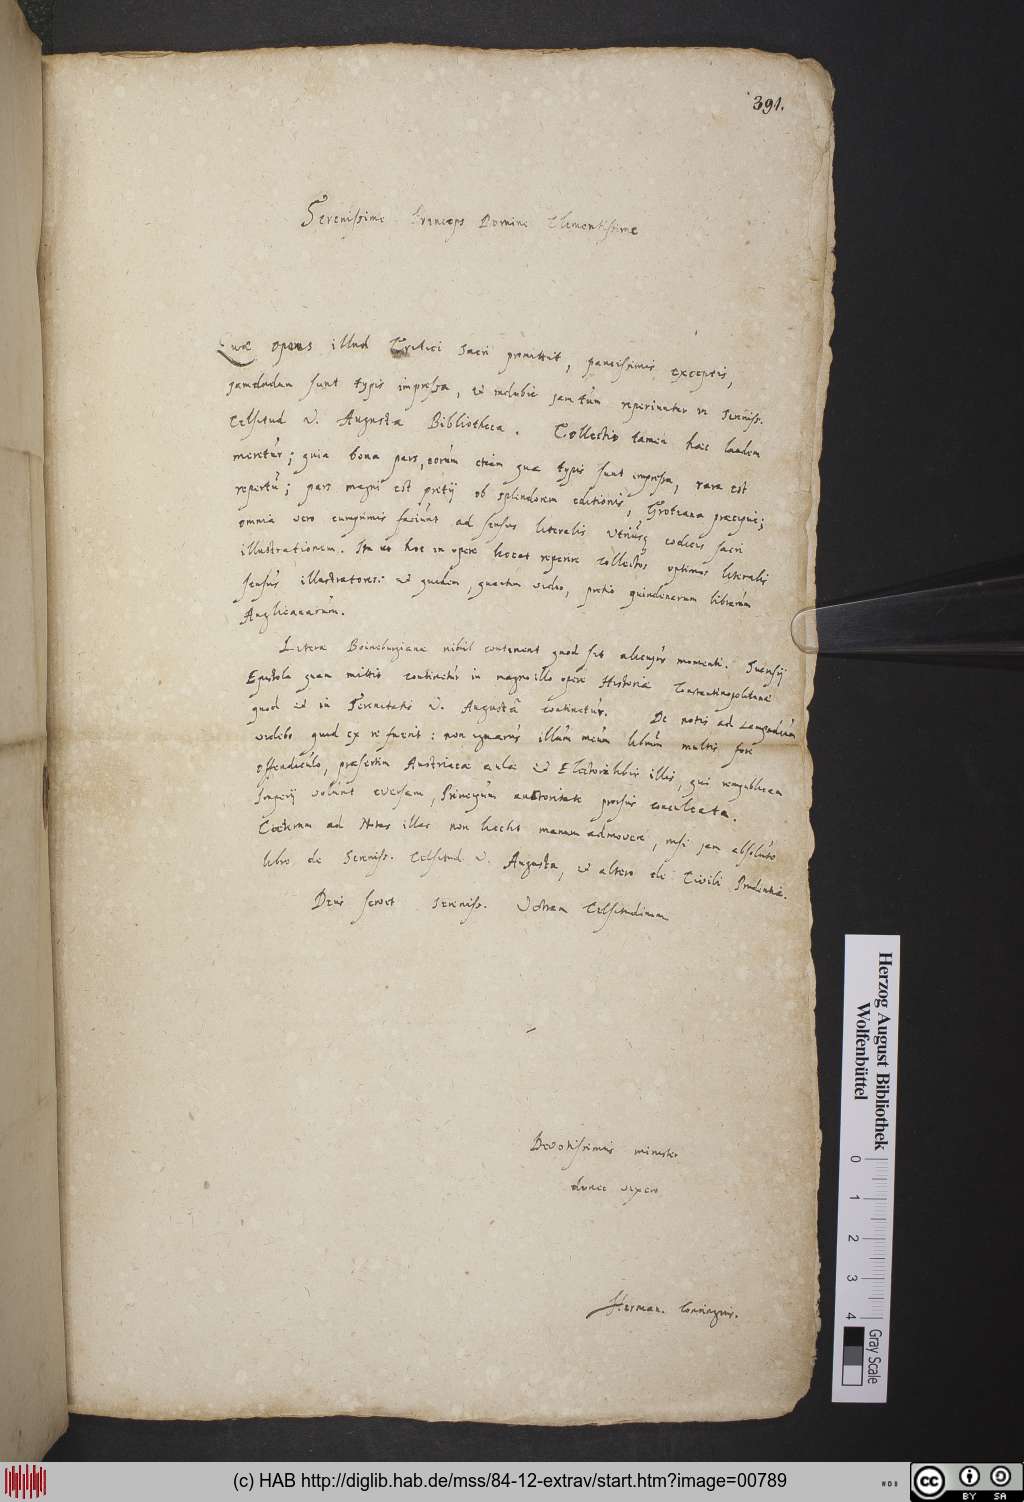 391.
Serenissime Princeps Domine Clementissime
Quae opus illud Critici Sacri promittit, paucissimis exceptis,
jamdudum sunt typis impressa, et indubie jam tum reperiuntur in Sereniss.
Celsitud. V. Augusta Bibliotheca. Collectio tamen haec laudem
meretur; quia bona pars, eorum etiam quae typis sunt impressa, rara est
repertu; pars magni est pretij ob splendorem editionis, Grotiana praecipue;
omnia vero cumprimis faciunt ad sensus literalis utriusq codicis sacri
illustrationem. Ita ut hoc in opere liceat reperire collectos optimos literalis
sensus illustratores: et quidem, quantum video, pretio quindenarum librarum
Anglicanarum.
Literae Boineburgianae nihil continent quod sit alicujus momenti. Suensij
Epistola quam mitto continetur in magno illo opere Historiae Constantinopolitanae
quod et in Serenitatis V. Augustâ continetur. De notis ad Lampadium
videbo quid ex re fuerit: non ignarus illum meum librum multis fore
offendiculo, praesertim Austriacae aulae et Electoralibus illis, qui rempublicam
Imperij volunt eversam, Principum autoritate prorsus conculcata.
Caeterum ad Notas illas non licebit manum admovere, nisi jam absoluto
libro de Sereniss. Celsitud. V. Augusta, et altero de Civili Prudentia.
Deus servet Sereniss. Vestram Celsitudinem
Devotissimus minister
donec vixero
Herman. Conringius.
Herzog August Bibliothek
Wolfenbüttel
0 1 2 3 4
Gray Scale
(c) HAB http://diglib.hab.de/mss/84-12-extrav/start.htm?image=00789
cc BY SA